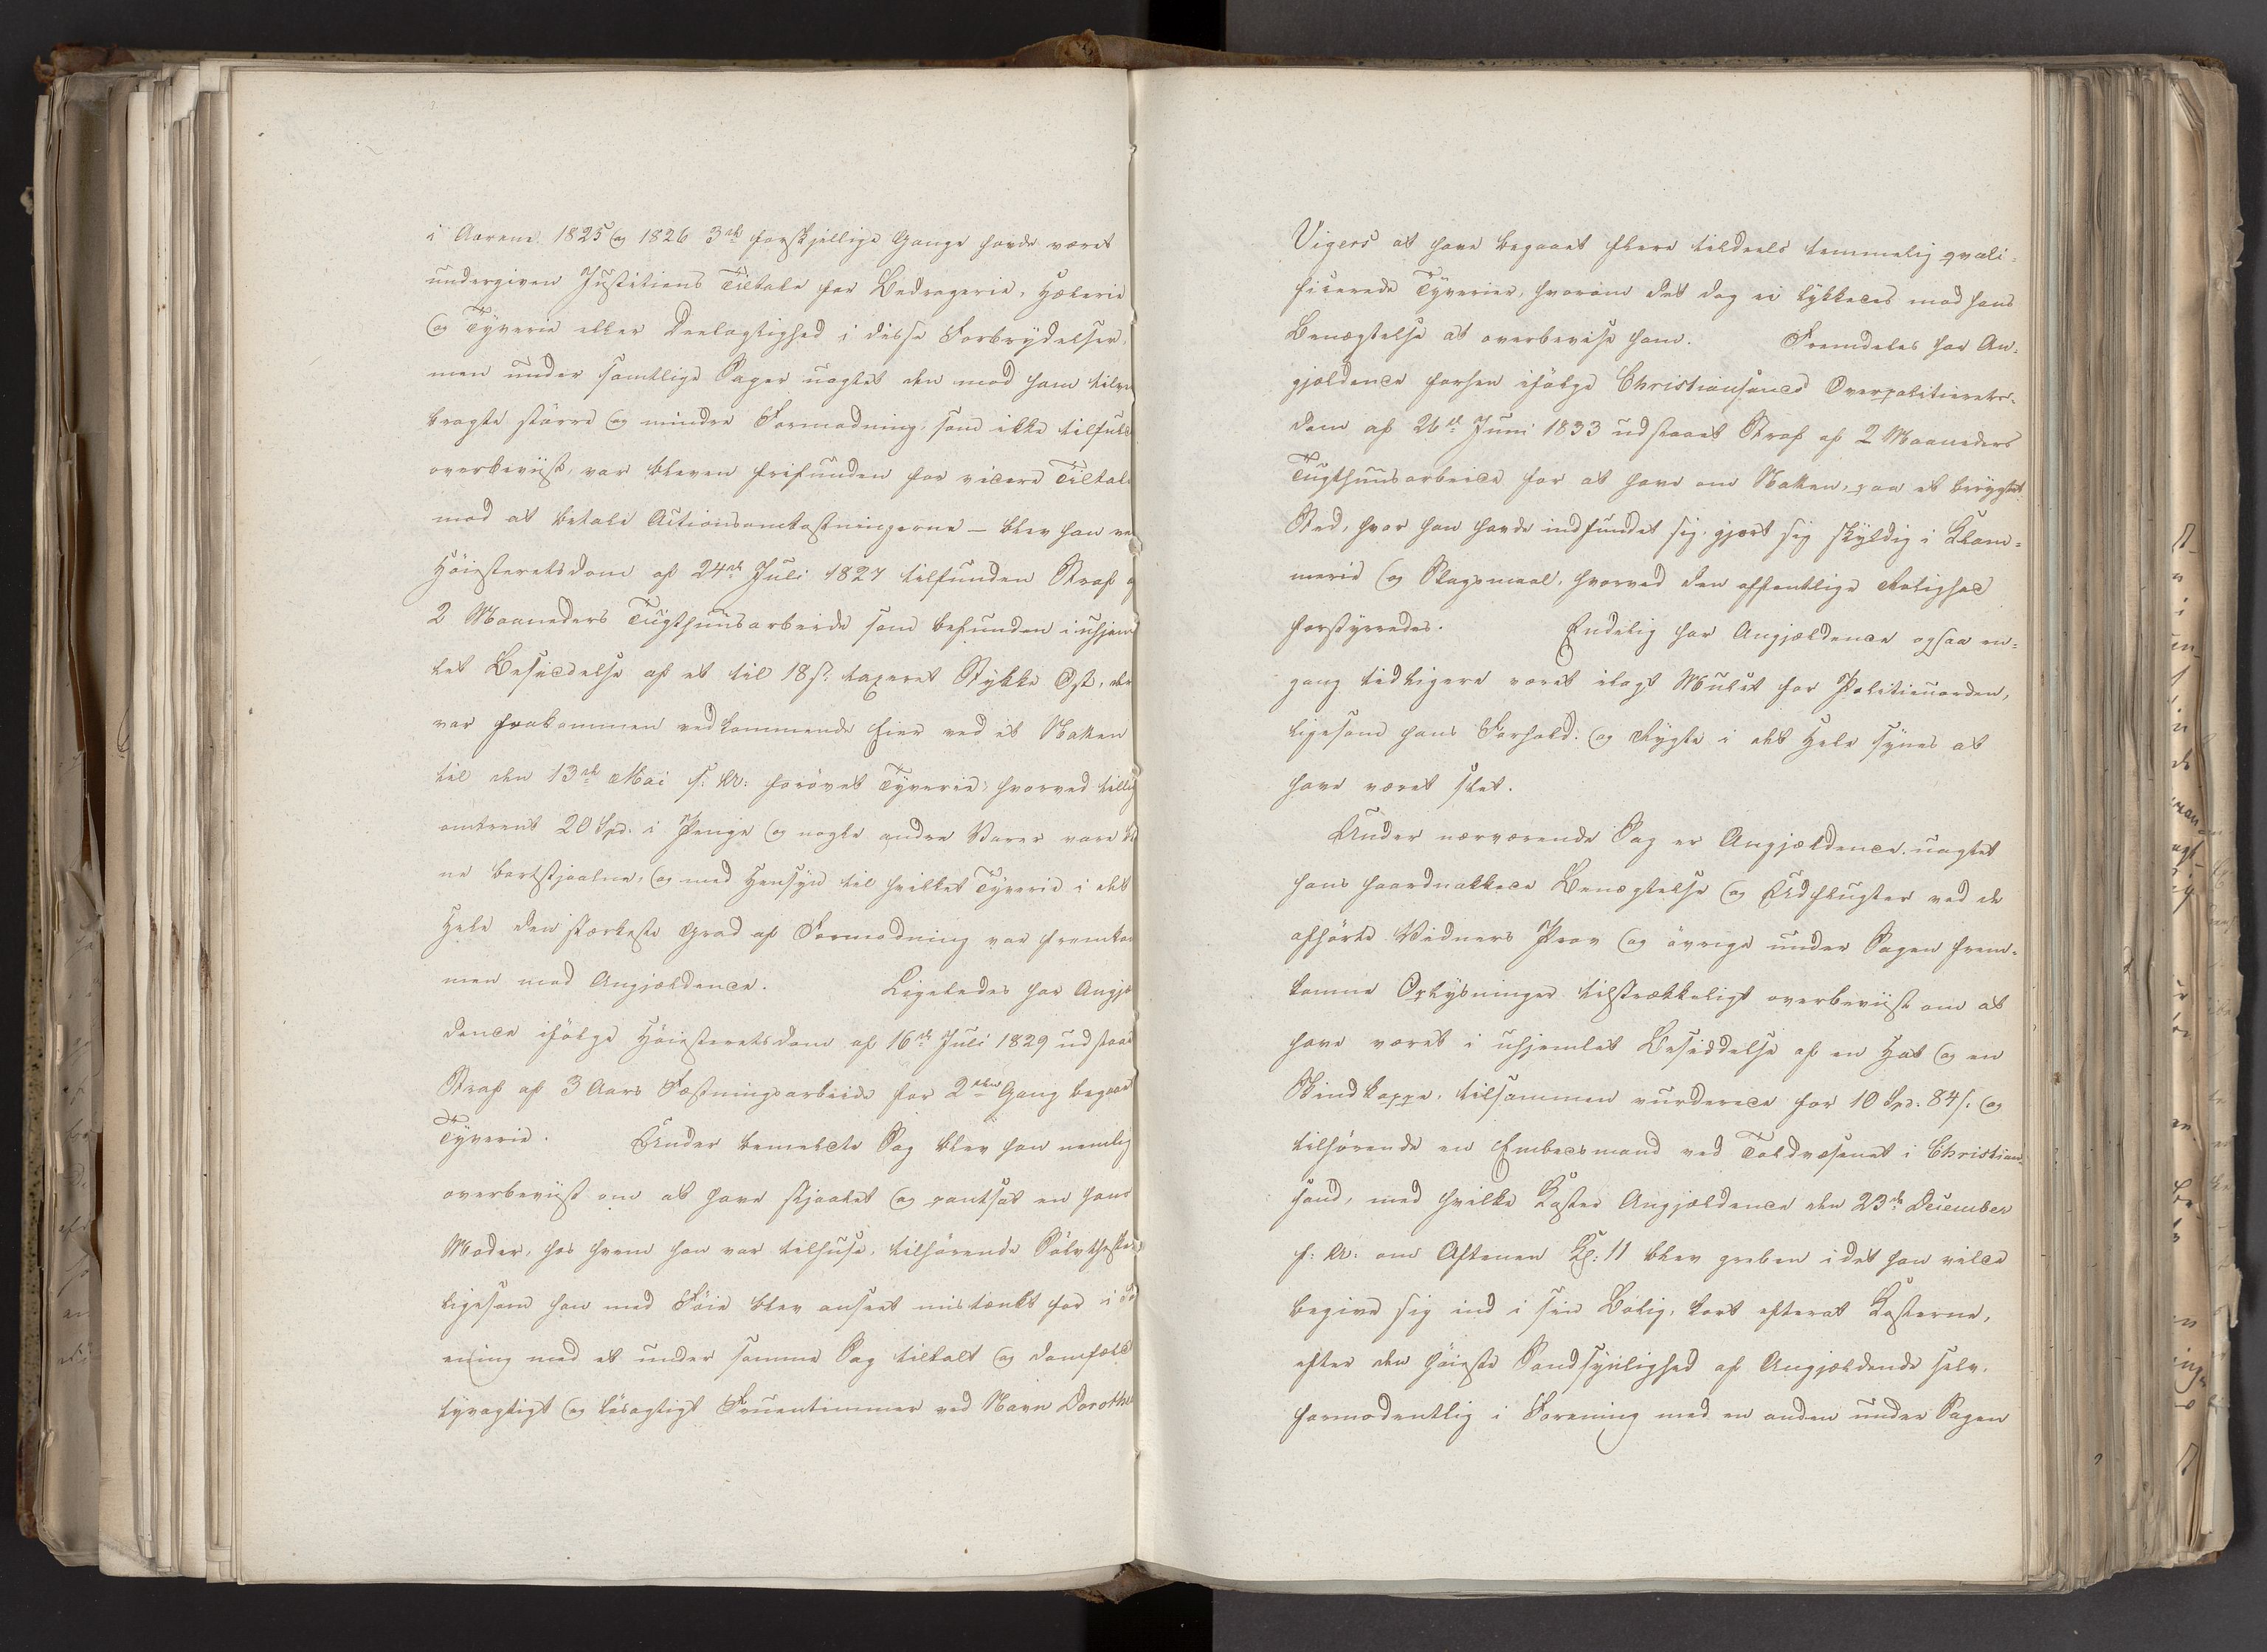 i Aarene 1825 og 1826 3de forskjellige Gange havde været
undergiven Justitiens Tiltale for Bedragerie, Hælerie
og Tyverie eller Deelagtighed i disse Forbrydelser,
men under samtlige Sager uagtet den mod ham tilve
bragte större og mindre Formodning, som ikke tilfuld
overbeviist, var bleven frifunden for videre Tiltale
mod at betale Actionsomkostningerne – blev han ve
Höiesteretsdom af 24de Juli 1827 tilfunden Straf a
2 Maaneders Tugthuusarbeide som befunden i uhjem
let Besiddelse af et til 18 s. taxeret Stykke Ost, der
var frakommen vedkommende Eier ved et Natten
til den 13de Mai s: A: forövet Tyverie, hvorved tillig
omtrent 20 Spd. i Penge og nogle andre Varer vare
ne bortstjaalne, og med Hensyn til hvilket Tyverie i det
Hele den stærkeste Grad af Formodning var fremkom
men mod Angjældende. Ligeledes har Angjæ
dende ifölge Höiesteretsdom af 16de Juli 1829 udstaaet
Straf af 3 Aars Fæstningsarbeide for 2den Gang begaaet
Tyverie. Under bemeldte Sag blev han nemlig
overbeviist om at have stjaalet og pantsat en hans
Moder, hos hvem han var tilhuse, tilhörende Sölvtheskee
ligesom han med Föie blev anseet mistænkt for i Fo
ening med et under samme Sag tiltalt og domfældt
tyvagtigt og lösagtigt Fruentimmer ved Navn Dorothe
Vigers at have begaaet flere tildeels temmelig qvali-
ficerede Tyverier, hvorom det dog ei lykkedes mod hans
Benægtelse at overbevise ham. Fremdeles har An-
gjældende forhen ifölge Christiansands Overpolitierets-
dom af 26de Juni 1833 udstaaet Straf af 2 Maaneders
Tugthuusarbeide for at have om Natten, paa et berygtet
Sted, hvor han havde indfundet sig, gjort sig skyldig i Klam-
merie og Slagsmaal, hvorved den offentlige Rolighed
forstyrredes. Endelig har Angjældende ogsaa en-
gang tidligere været ilagt Mulct for Politieuorden,
ligesom hans Forhold og Rygte i det Hele synes at
have været slet.
Under nærværende Sag er Angjældende uagtet
hans haardnakkede Benægtelse og Udflugter ved de
afhörte Vidners Prov og övrige under Sagen frem-
komne Oplysninger tilstrækkeligt overbeviist om at
have været i uhjemlet Besiddelse af en Hat og en
Skindkappe, tilsammen vurderede for 10 Spd: 84 s: og
tilhörende en Embedsmand ved Toldvæsenet i Christian-
sand, med hvilke Koster Angjældende den 23de December
f: A: om Aftenen Kl: 11 blev greben idet han vilde
begive sig ind i sin Bolig, kort efterat Kosterne,
efter den höieste Sandsynlighed af Angjældende selv,
formodentlig i Forening med en anden under Sagen